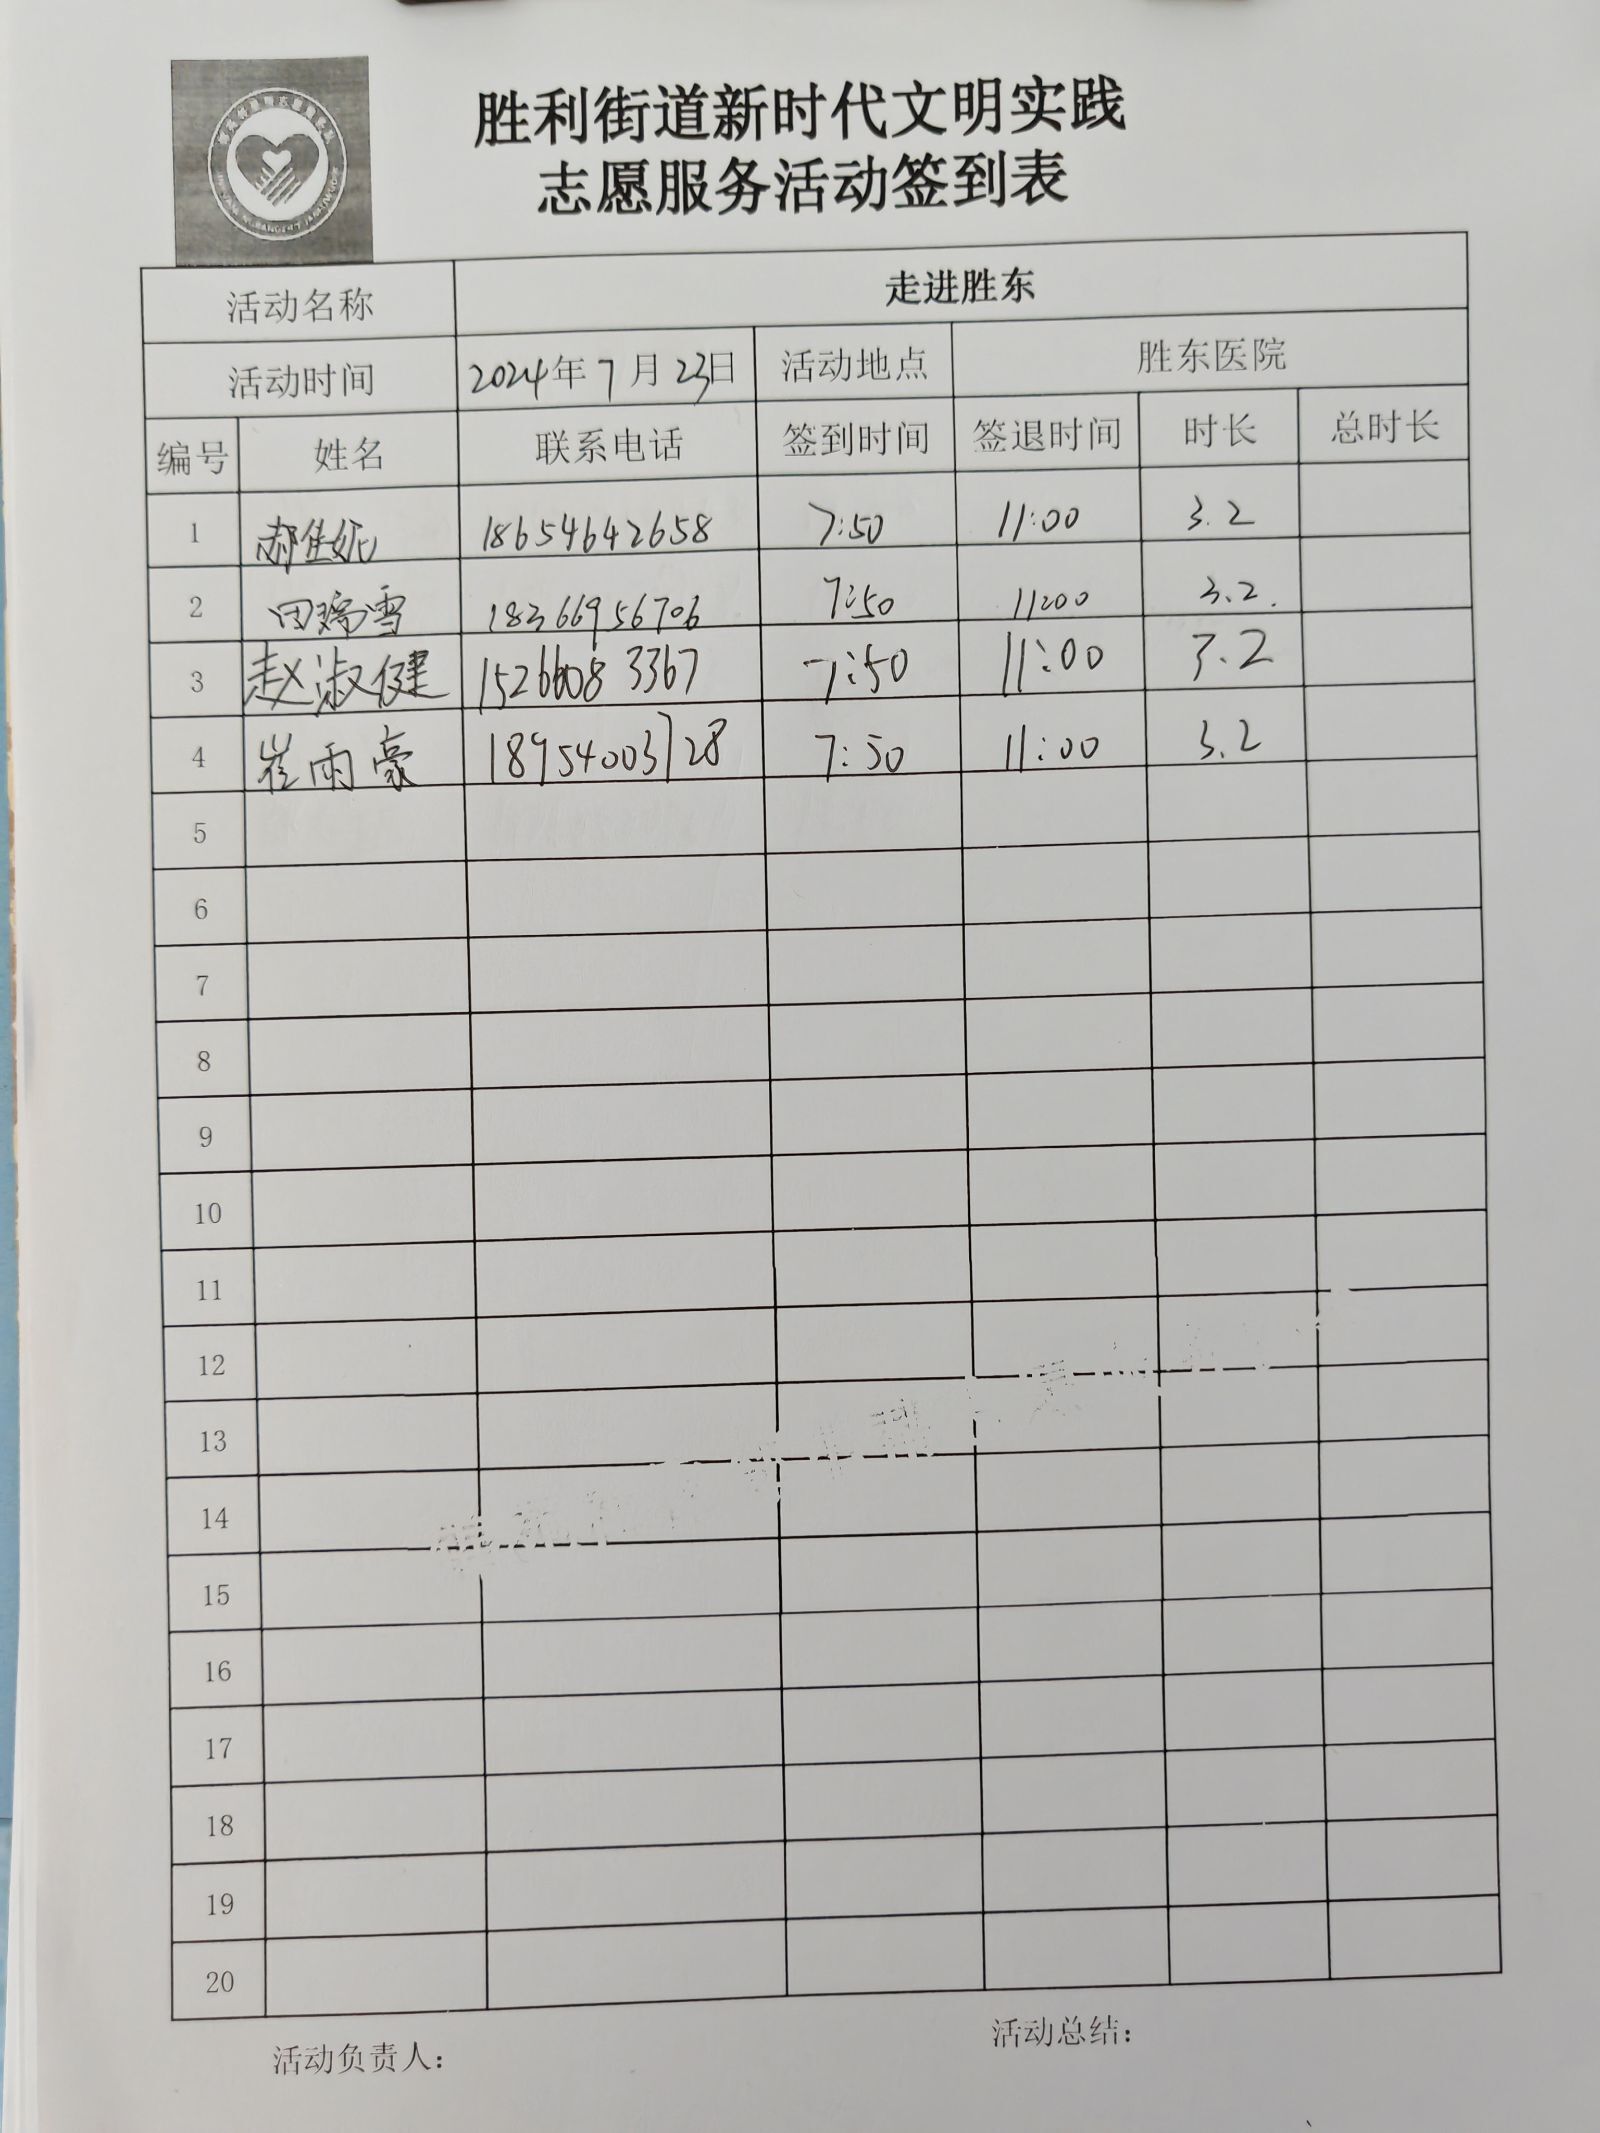 胜利街道新时代文明实践
志愿服务活动签到表
活动名称 走进胜东
活动时间 2024年7月23日 活动地点 胜东医院
编号 姓名 联系电话 签到时间 签退时间 时长 总时长
1 郝佳妮 18654642658 7:50 11:00 3.2
2 田瑞雪 18366956706 7:50 11:00 3.2.
3 赵淑健 15266083367 7:50 11:00 3.2
4 崔雨豪 18954003728 7:50 11:00 3.2
5
6
7
8
9
10
11
12
13
14
15
16
17
18
19
20
活动负责人: 活动总结: